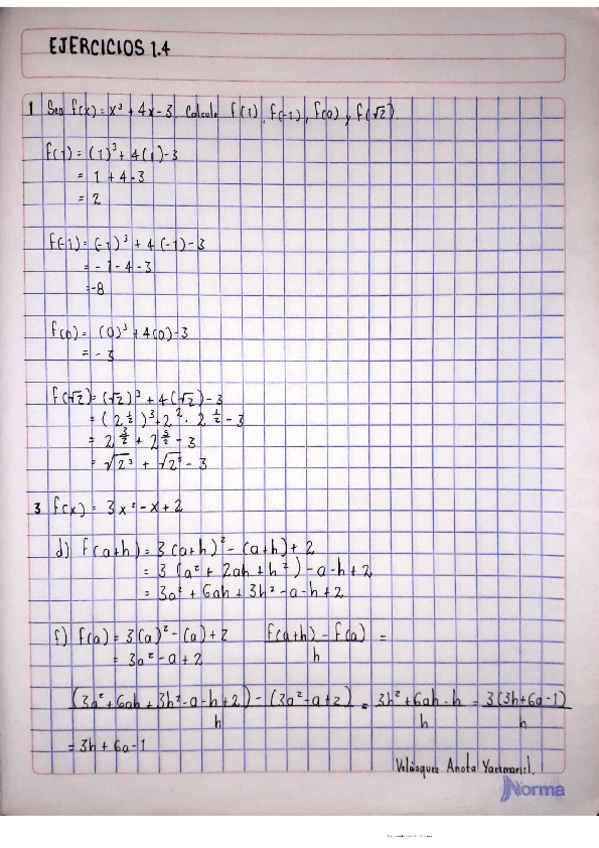 EJERCICIOS 1.4
1 Sea f(x) = x³ + 4x - 3 Calcule f(1), f(-1), f(0) y f(√2).
f(1) = (1)³ + 4(1) - 3
= 1 + 4 - 3
= 2
f(-1) = (-1)³ + 4(-1) - 3
= - 1 - 4 - 3
= -8
f(0) = (0)³ + 4(0) - 3
= - 3
f(√2) = (√2)³ + 4(√2) - 3
= (2^{1/2})³ + 2² · 2^{1/2} - 3
= 2^{3/2} + 2^{5/2} - 3
= √2³ + √2⁵ - 3
3 f(x) = 3x² - x + 2
d) f(a+h) = 3(a+h)² - (a+h) + 2
= 3(a² + 2ah + h²) - a - h + 2
= 3a² + 6ah + 3h² - a - h + 2
f) f(a) = 3(a)² - (a) + 2 (f(a+h) - f(a))/h =
= 3a² - a + 2
((3a² + 6ah + 3h² - a - h + 2) - (3a² - a + 2))/h = (3h² + 6ah - h)/h = 3(3h + 6a - 1)/h
= 3h + 6a - 1
Velásquez Anota Yarimariel.
Norma